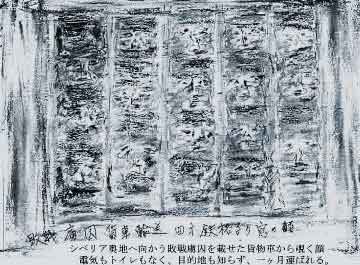 敗戦虜囚 貨車輸送 四方鉄格子の窓の顔
シベリア奥地へ向かう敗戦虜囚を載せた貨物車から覗く顔
電気もトイレもなく、目的地も知らず、一ヶ月運ばれる。